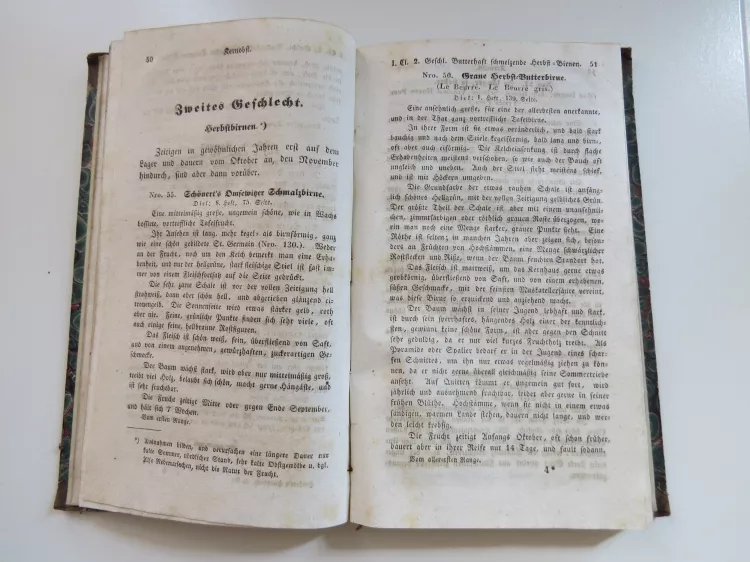 50 Kernobst.
Zweites Geschlecht.
Herbstbirnen.*)
Zeitigen in gewöhnlichen Jahren erst auf dem
Lager und dauern vom Oktober an, den November
hindurch, sind aber dann vorüber.
Nro. 55. Schönert's Omsewitzer Schmalzbirne.
Diel: 6. Heft, 75. Seite.
Eine mittelmäßig große, ungemein schöne, wie in Wachs
bossirte, vortreffliche Tafelfrucht.
Ihr Ansehen ist lang, mehr kegel- als birnförmig, ganz
wie eine schön gebildete St. Germain (Nro. 130.). Weder
an der Frucht, noch um den Kelch bemerkt man eine Erha-
benheit, und der hellgrüne, stark fleischige Stiel ist fast im-
mer von einem Fleischfortsatz auf die Seite gedrückt.
Die sehr zarte Schale ist vor der vollen Zeitigung hell
strohweiß, dann aber schön hell, und abgerieben glänzend ci-
tronengelb. Die Sonnenseite wird etwas stärker gelb, roth
aber nie. Feine, grünliche Punkte finden sich sehr viele, oft
auch einige feine, hellbraune Rostfiguren.
Das Fleisch ist schön weiß, fein, überfließend von Saft,
und von einem angenehmen, gewürzhaften, zuckerartigen Ge-
schmacke.
Der Baum wächst stark, wird aber nur mittelmäßig groß,
treibt viel Holz, belaubt sich schön, macht gerne Hängäste, und
ist sehr fruchtbar.
Die Frucht zeitigt Mitte oder gegen Ende September,
und hält sich 7 Wochen.
Vom ersten Range.
*) Ausnahmen bilden, und verursachen eine längere Dauer nur
kalte Sommer, nördlicher Stand, sehr kalte Obstgewölbe u. dgl.
Also Nebenursachen, nicht die Natur der Frucht.
I. Cl. 2. Geschl. Butterhaft schmelzende Herbst-Birnen. 51
Nro. 56. Graue Herbst-Butterbirne.
(Le Beurré. Le Beurré gris.)
Diel: 1. Heft, 139. Seite.
Eine ansehnlich große, für eine der allerbesten anerkannte,
und in der That ganz vortreffliche Tafelbirne.
In ihrer Form ist sie etwas veränderlich, und bald stark
bauchig und nach dem Stiele kegelförmig, bald lang und birn-,
oft aber auch eiförmig. Die Kelcheinsenkung ist durch flache
Erhabenheiten meistens verschoben, so wie auch der Bauch oft
ungleich und uneben. Auch der Stiel steht meistens schief,
und ist mit Höckern umgeben.
Die Grundfarbe der etwas rauhen Schale ist anfäng-
lich schönes Hellgrün, mit der vollen Zeitigung gelbliches Grün.
Der größte Theil der Schale ist aber mit einem unansehnli-
chen, zimmtfarbigen oder röthlich grauen Roste überzogen, wo-
rin man noch eine Menge starker, grauer Punkte sieht. Eine
Röthe ist selten; in manchen Jahren aber zeigen sich, besonde-
rs an Früchten von Hochstämmen, eine Menge schwärzlicher
Rostflecken und Risse, wenn der Baum feuchten Standort hat.
Das Fleisch ist mattweiß, um das Kernhaus gerne etwas
grobkörnig, überfließend von Saft, und von einem erhabenen,
süßen Geschmacke, mit der feinsten Muskatellersäure vereint,
was diese Birne so erquickend und anziehend macht.
Der Baum wächst in seiner Jugend lebhaft und stark,
ist durch sein sperrhaftes, hängendes Holz einer der kenntlich-
sten, gewinnt keine schöne Form, ist aber gegen den Schnitt
sehr geduldig, da er nur viel kurzes Fruchtholz treibt. Als
Pyramide oder Spalier bedarf er in der Jugend eines schar-
fen Schnittes, um ihn nur etwas regelmäßig ziehen zu kön-
nen, da er nicht gerne überall gleichmäßig seine Sommertriebe
ansetzt. Auf Quitten kömmt er ungemein gut fort, wird
jährlich und ausnehmend fruchtbar, leidet aber gerne in seiner
frühen Blüthe. Hochstämme, wenn sie nicht in einem etwas
sandigen, warmen Lande stehen, dauern nicht lange, und wer-
den leicht krebsig.
Die Frucht zeitigt Anfangs Oktober, oft schon früher,
dauert aber in ihrer Reife nur 14 Tage, und fault sodann.
Vom allerersten Range.
4*